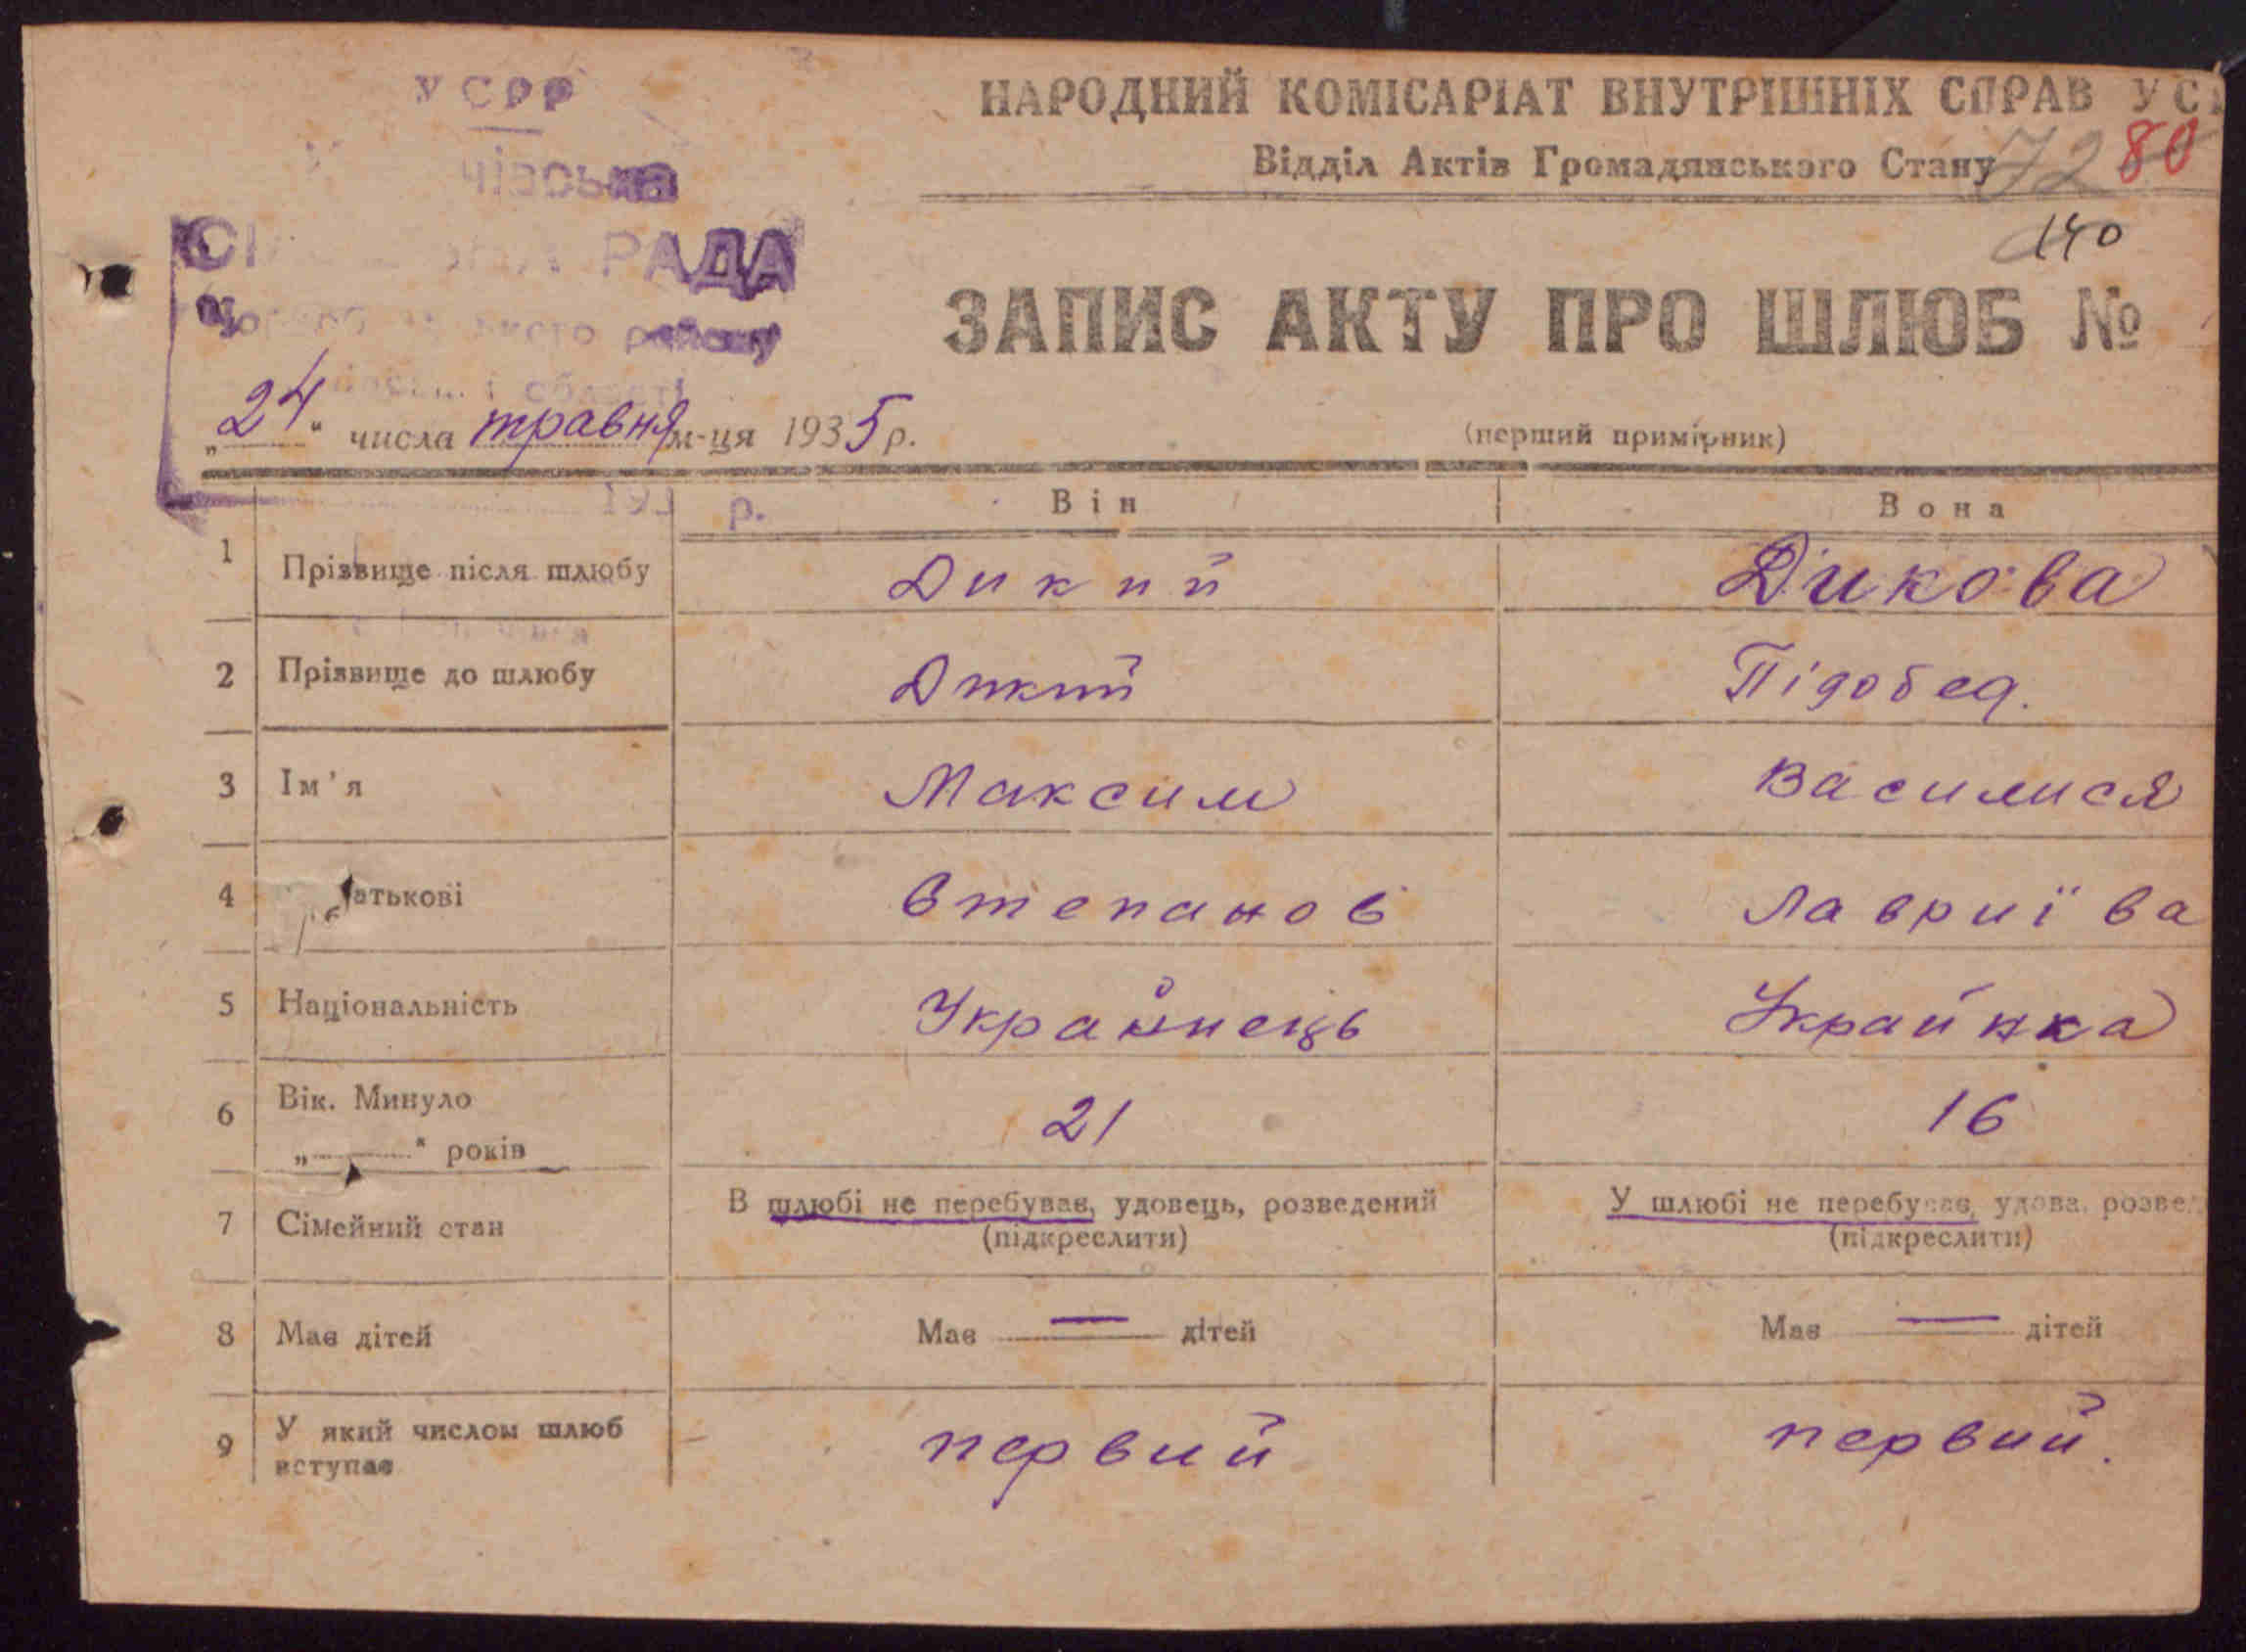 УСРР
НАРОДНИЙ КОМІСАРІАТ ВНУТРІШНІХ СПРАВ УС
Відділ Актів Громадянського Стану 72 80
140
РАДА
району
ЗАПИС АКТУ ПРО ШЛЮБ №
області
„24“ числа травня м-ця 1935 р.
(перший примірник)
193 р.
Він Вона
1 Прізвище після шлюбу Дикий Дикова
2 Прізвище до шлюбу Дикий Підобед.
3 Ім'я Максим Василися
4 атькові Степанов Лавриїва
5 Національність Українець Украйнка
6 Вік. Минуло
„ “ років 21 16
7 Сімейний стан В шлюбі не перебуває, удовець, розведений У шлюбі не перебуває, удова, розве
(підкреслити) (підкреслити)
8 Має дітей Має — дітей Має — дітей
9 У який числом шлюб
вступає первий первий.